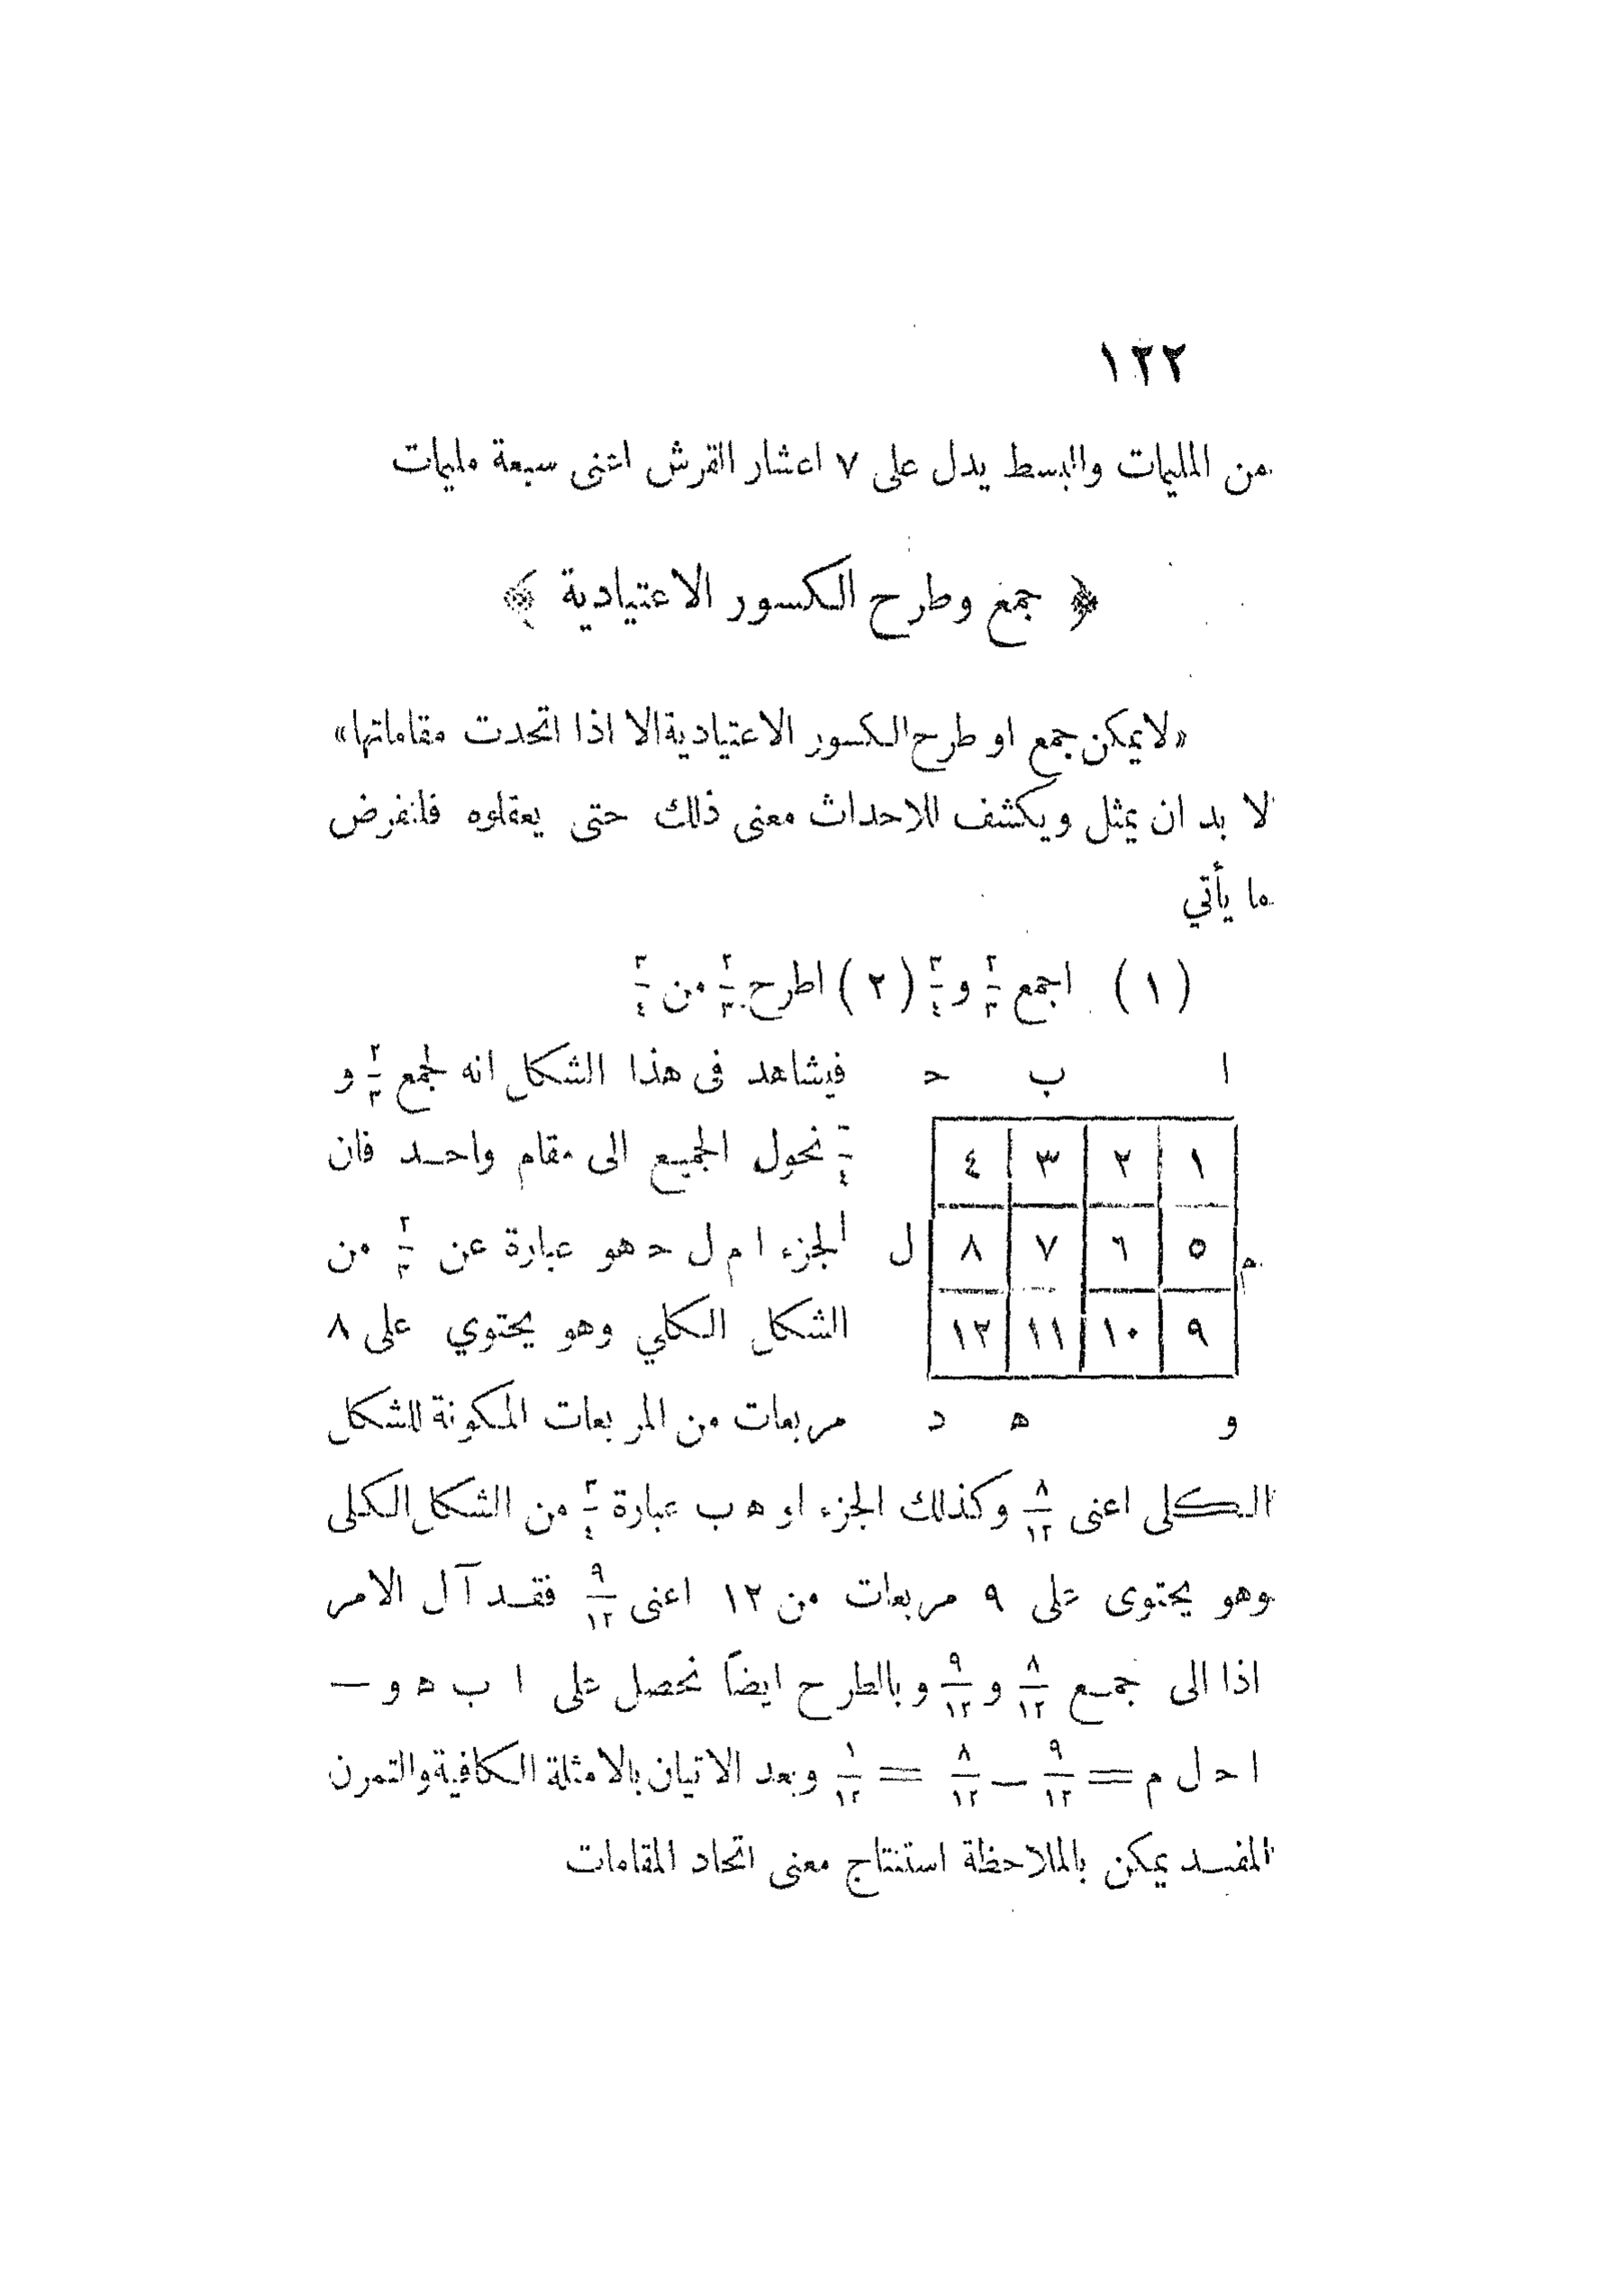 ١٢٢
من المليمات والبسط يدل على ٧ اعشار القرش اعنى سبعة مليمات
﴿ جمع وطرح الكسور الاعتيادية ﴾
«لا يمكن جمع او طرح الكسور الاعتيادية الا اذا اتحدت مقاماتها»
لا بد ان يمثل ويكشف للاحداث معنى ذلك حتى يعقلوه فلنفرض
ما يأتي
(١) اجمع ٢/٣ و ٣/٤ (٢) اطرح ٢/٣ من ٣/٤
ا ب ح
١ ٢ ٣ ٤
م ٥ ٦ ٧ ٨ ل
٩ ١٠ ١١ ١٢
و ه د
فيشاهد فى هذا الشكل انه لجمع ٢/٣ و
٣/٤ نحول الجميع الى مقام واحد فان
الجزء ا م ل ح هو عبارة عن ٢/٣ من
الشكل الكلي وهو يحتوي على ٨
مربعات من المربعات المكونة للشكل
الكلى اعنى ٨/١٢ وكذلك الجزء ا و ه ب عبارة ٣/٤ من الشكل الكلى
وهو يحتوى على ٩ مربعات من ١٢ اعنى ٩/١٢ فقد آل الامر
اذا الى جمع ٨/١٢ و ٩/١٢ وبالطرح ايضاً نحصل على ا ب ه و —
ا ح ل م = ٩/١٢ — ٨/١٢ = ١/١٢ وبعد الاتيان بالامثلة الكافية والتمرن
المفيد يمكن بالملاحظة استنتاج معنى اتحاد المقامات